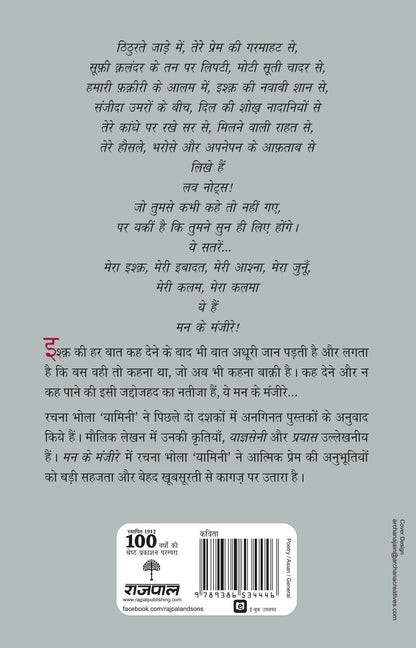 ठिठुरते जाड़े में, तेरे प्रेम की गरमाहट से,
सूफ़ी क़लंदर के तन पर लिपटी, मोटी सूती चादर से,
हमारी फ़क़ीरी के आलम में, इश्क़ की नवाबी शान से,
संजीदा उमरों के बीच, दिल की शोख़ नादानियों से
तेरे कांधे पर रखे सर से, मिलने वाली राहत से,
तेरे हौसले, भरोसे और अपनेपन के आफ़ताब से
लिखे हैं
लव नोट्स!
जो तुमसे कभी कहे तो नहीं गए,
पर यकीं है कि तुमने सुन ही लिए होंगे।
ये सतरें...
मेरा इश्क़, मेरी इबादत, मेरी आश्ना, मेरा जुनूँ,
मेरी कलम, मेरा कलमा
ये हैं
मन के मंजीरे!
इश्क़ की हर बात कह देने के बाद भी बात अधूरी जान पड़ती है और लगता
है कि बस वही तो कहना था, जो अब भी कहना बाक़ी है। कह देने और न
कह पाने की इसी जद्दोजहद का नतीजा हैं, ये मन के मंजीरे...
रचना भोला ‘यामिनी’ ने पिछले दो दशकों में अनगिनत पुस्तकों के अनुवाद
किये हैं। मौलिक लेखन में उनकी कृतियाँ, याज्ञसेनी और प्रयास उल्लेखनीय
हैं। मन के मंजीरे में रचना भोला ‘यामिनी’ ने आत्मिक प्रेम की अनुभूतियों
को बड़ी सहजता और बेहद खूबसूरती से कागज़ पर उतारा है।
स्थापित 1912
100 वर्षों की
श्रेष्ठ प्रकाशन परम्परा
राजपाल
www.rajpalpublishing.com
facebook.com/rajpalandsons
कविता
Poetry / Asian / General
9 789386 534446
e ई-बुक उपलब्ध
Cover Design
archanajain@archanacreatives.com